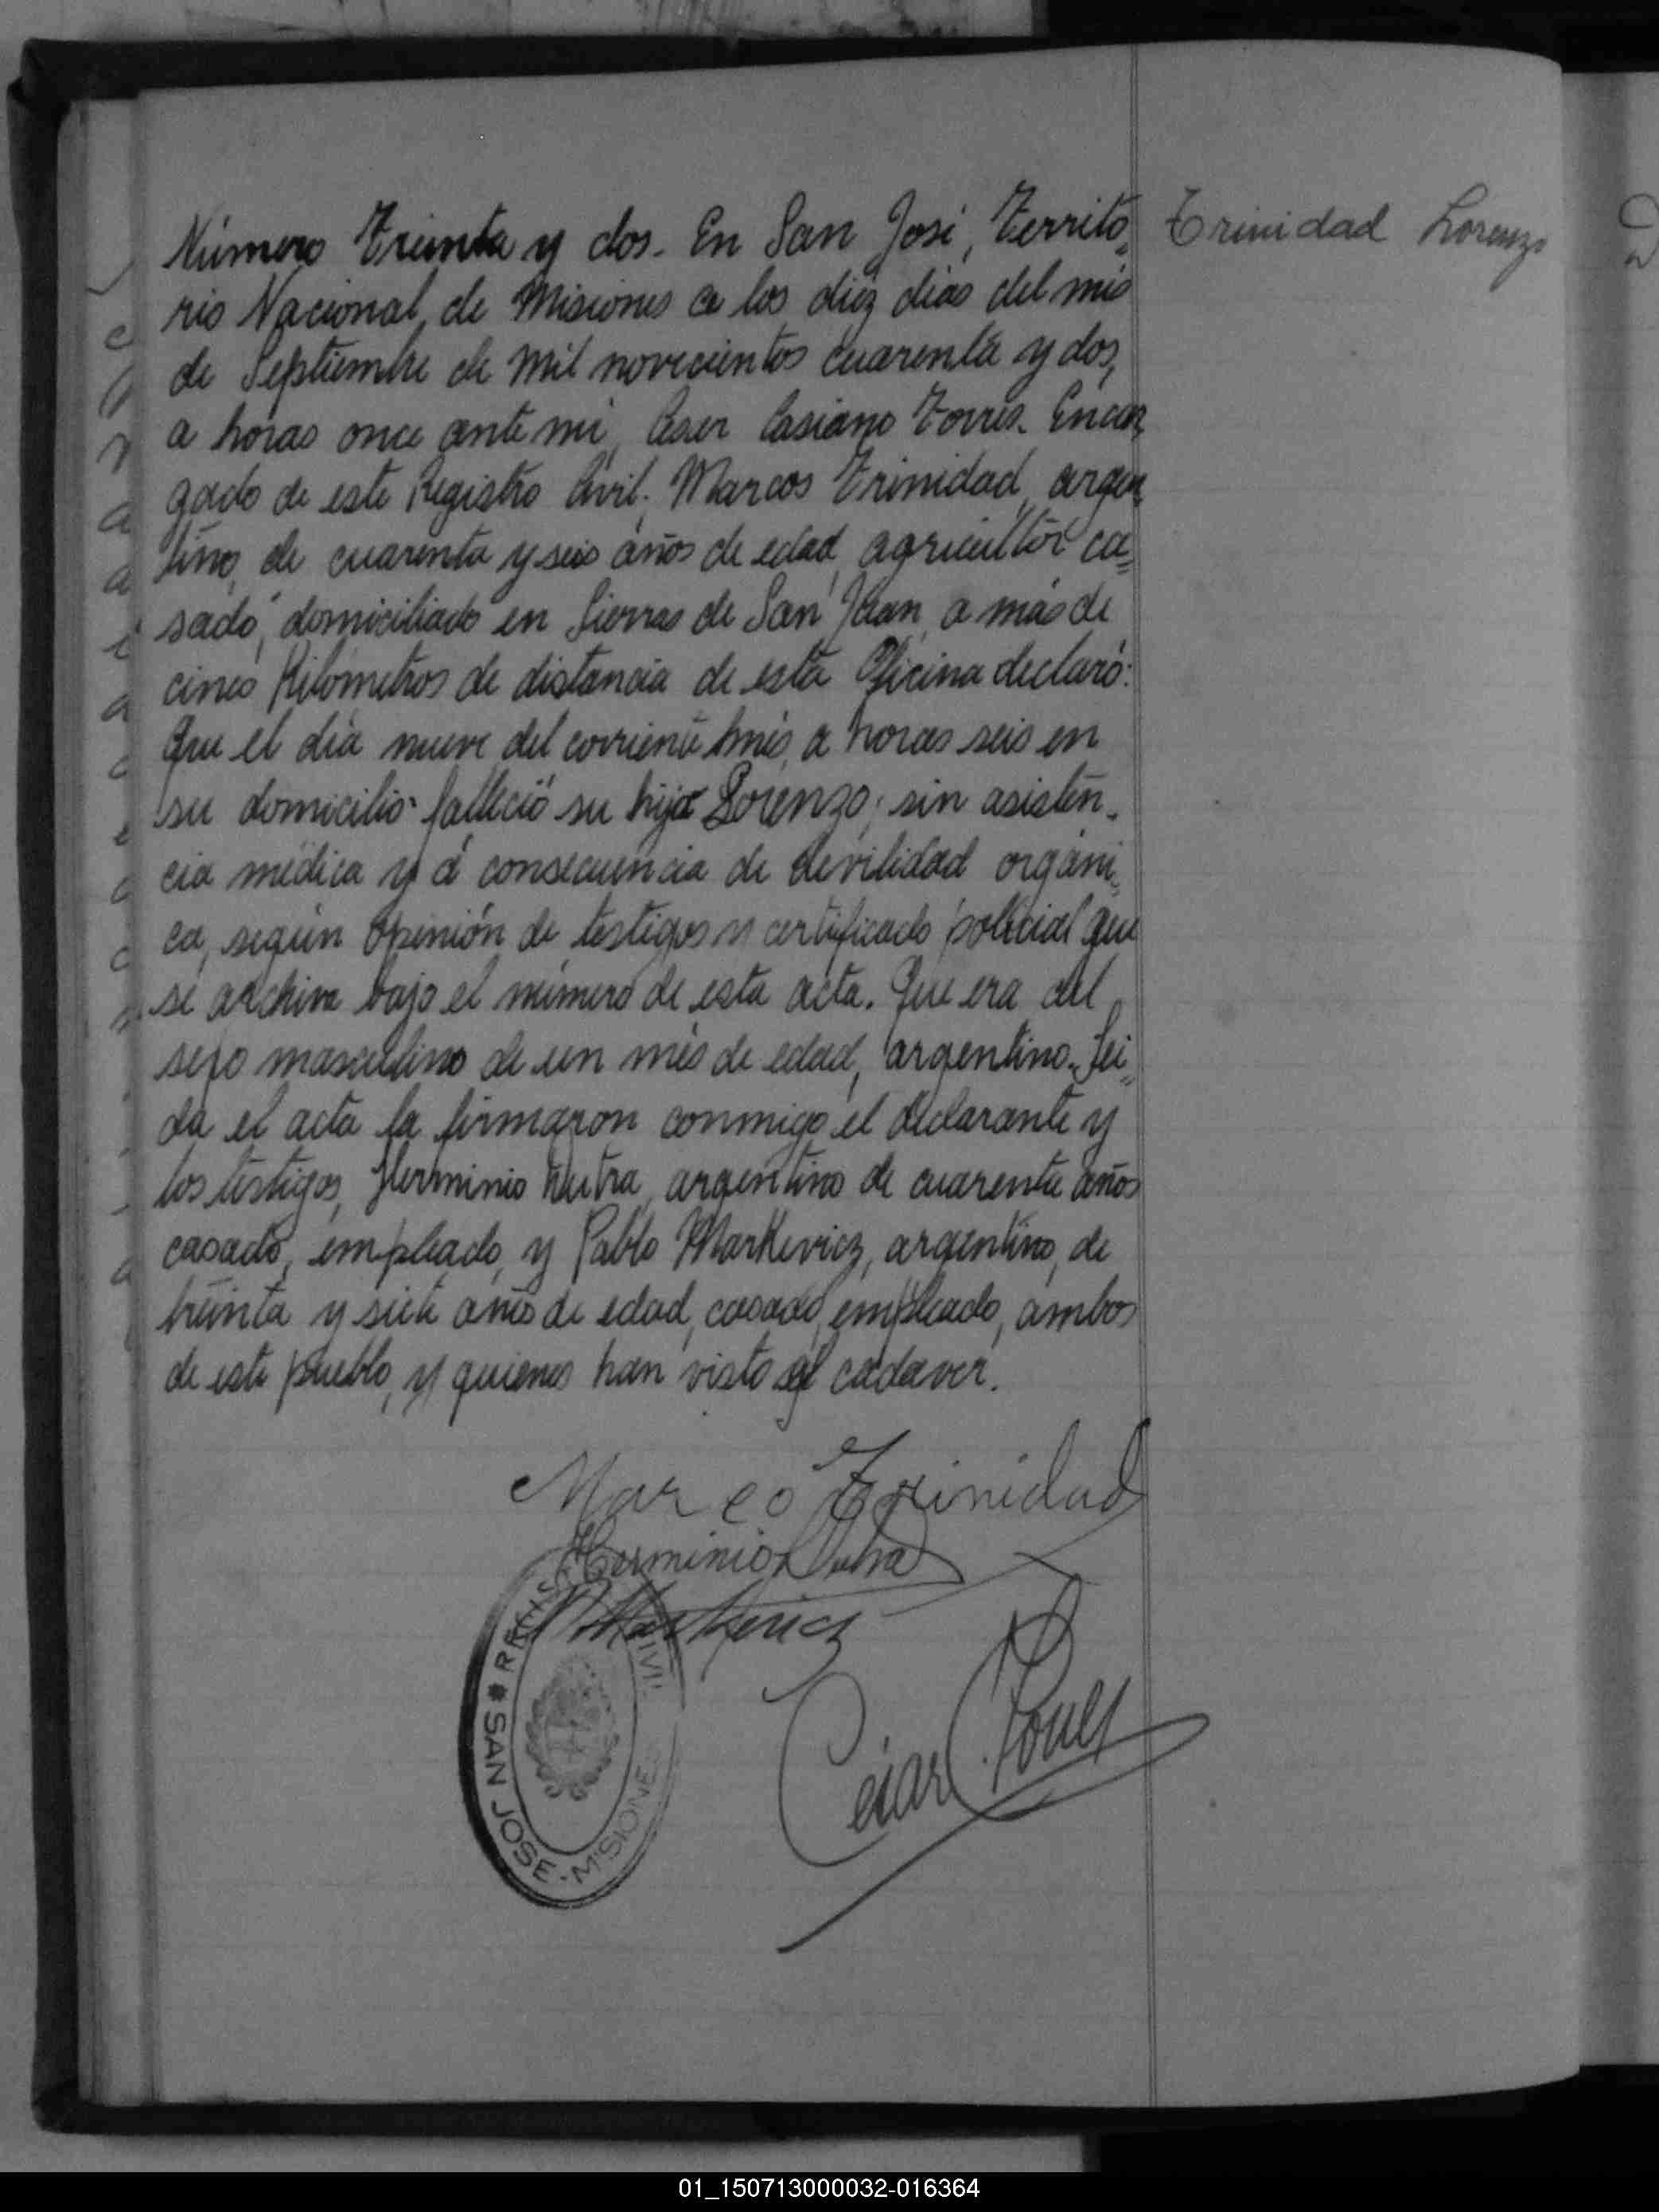 Número Treinta y dos. En San José, Territo- Trinidad Lorenzo
rio Nacional de Misiones a los diez dias del mes
de Septiembre de mil novecientos cuarenta y dos,
a horas once ante mi, Cesar Casiano Torres. Encar-
gado de este Registro Civil. Marcos Trinidad, argen-
tino, de cuarenta y seis años de edad, agricultor ca=
sado, domiciliado en Sierras de San Juan, a más de
cinco Kilómetros de distancia de esta Oficina declaró:
Que el día nueve del corriente mes, a horas seis en
su domicilio falleció su hijo Lorenzo; sin asisten-
cia médica y á consecuencia de devilidad orgáni=
ca, según opinión de testigos y certificado policial que
se archiva bajo el número de esta acta. Que era del
sexo masculino de un mes de edad, argentino. Lei=
da el acta la firmaron conmigo el declarante y
los testigos, Herminio Dutra, argentino de cuarenta años
casado, empleado, y Pablo Markevicz, argentino, de
treinta y siete años de edad, casado, empleado, ambos
de este pueblo, y quienes han visto el cadaver.
Marco Trinidad
Herminio Dutra
P Markevicz
Cesar C Torres
REGIS CIVIL
SAN JOSE - MISIONE
01_150713000032-016364